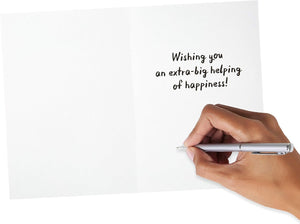 Wishing you
an extra-big helping
of happiness!